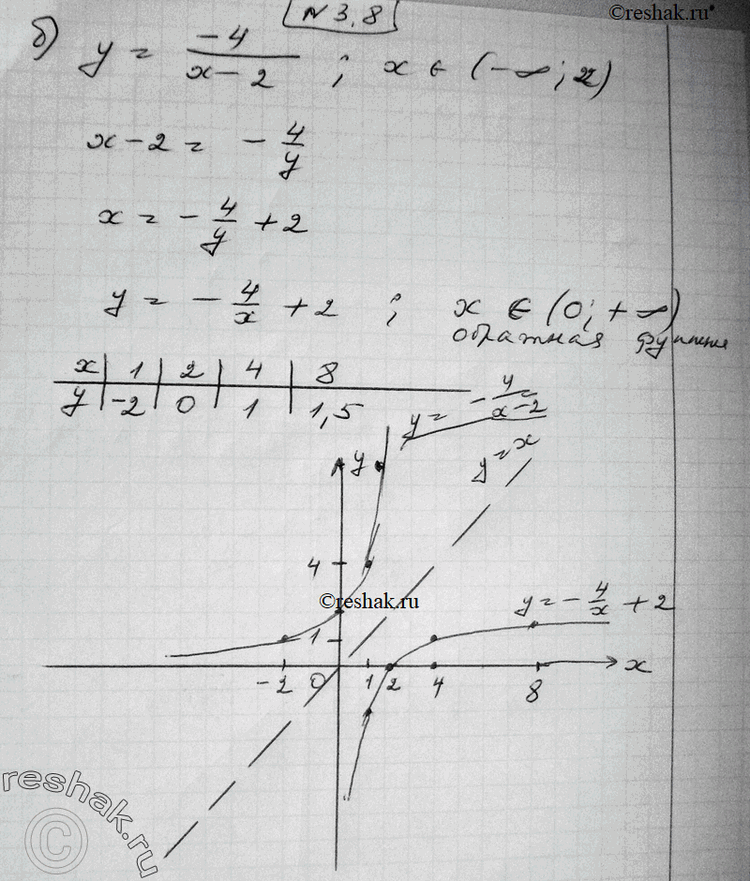 ©reshak.ru
N 3,8
б) y = -4/(x-2) ; x ∈ (-∞; 2)
x-2 = -4/y
x = -4/y + 2
y = -4/x + 2 ; x ∈ (0; +∞)
обратная функция
x | 1 | 2 | 4 | 8
y | -2 | 0 | 1 | 1,5
y = -4/(x-2)
y = x
y
4
©reshak.ru
y = -4/x + 2
1
-2 0 1 2 4 8 x
reshak.ru
©